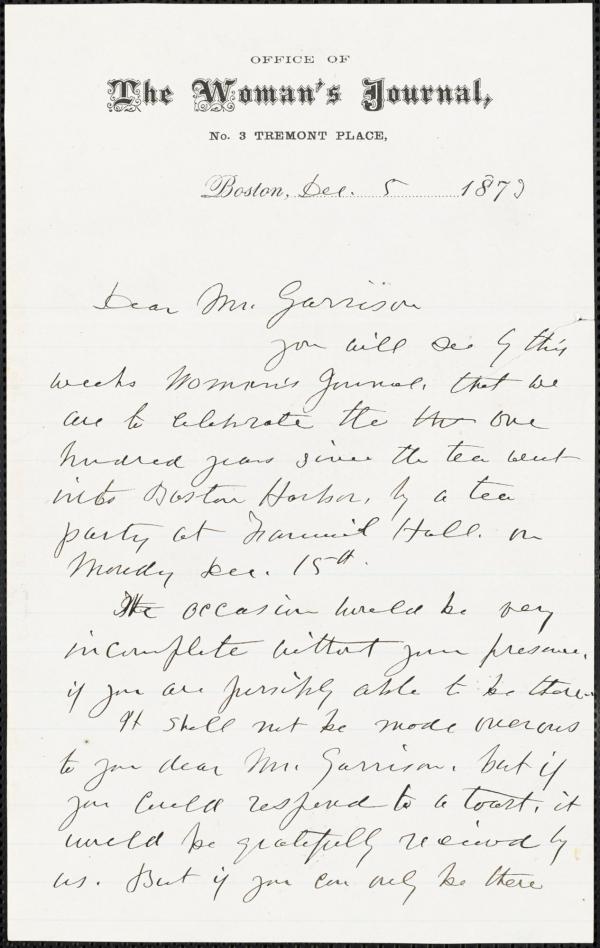 OFFICE OF
The Woman's Journal,
No. 3 TREMONT PLACE,
Boston, Dec. 5 1873
Dear Mr. Garrison
you will see by this
weeks Woman's Journal, that we
are to celebrate the the one
hundred years since the tea went
into Boston Harbor, by a tea
party at Faneuil Hall. on
Monday Dec. 15th.
The occasion would be very
incomplete without your presence,
if you are possibly able to be there
It shall not be made onerous
to you dear Mr. Garrison, but if
you could respond to a toast, it
would be gratefully received by
us. But if you can only be there